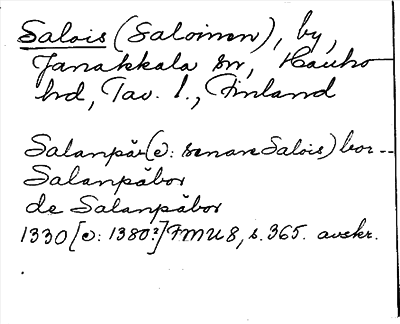 Salois (Saloinen), by,
Janakkala sn, Hauho
hd, Tav. l., Finland
Salanpäe (ɔ: senare Salois) bor --
Salanpäbor
de Salanpäbor
1330 [ɔ: 1380?] FMU 8, s. 365. avskr.